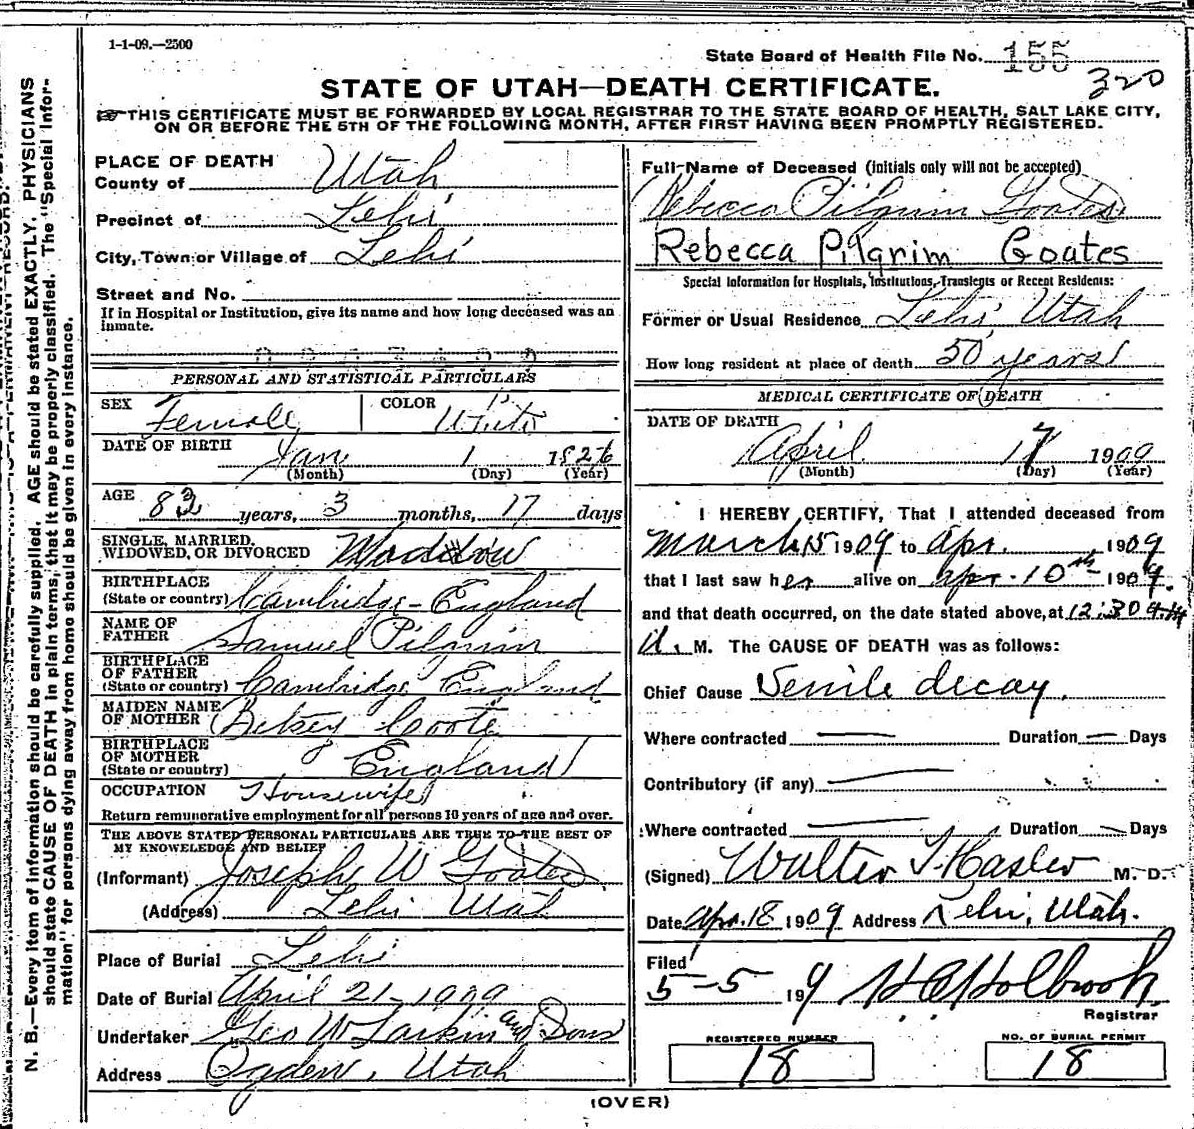 1-1-09.—2500
State Board of Health File No. 155
320
STATE OF UTAH—DEATH CERTIFICATE.
THIS CERTIFICATE MUST BE FORWARDED BY LOCAL REGISTRAR TO THE STATE BOARD OF HEALTH, SALT LAKE CITY,
ON OR BEFORE THE 5TH OF THE FOLLOWING MONTH, AFTER FIRST HAVING BEEN PROMPTLY REGISTERED.
N. B.—Every item of information should be carefully supplied. AGE should be stated EXACTLY. PHYSICIANS
should state CAUSE OF DEATH in plain terms, that it may be properly classified. The "Special Infor-
mation" for persons dying away from home should be given in every instance.
PLACE OF DEATH
County of Utah
Precinct of Lehi
City, Town or Village of Lehi
Street and No.
If in Hospital or Institution, give its name and how long deceased was an
inmate.
PERSONAL AND STATISTICAL PARTICULARS
SEX Female COLOR White
DATE OF BIRTH Jan 1 1826
(Month) (Day) (Year)
AGE 83 years, 3 months, 17 days
SINGLE, MARRIED,
WIDOWED, OR DIVORCED Widow
BIRTHPLACE
(State or country) Cambridge - England
NAME OF
FATHER Samuel Pilgrim
BIRTHPLACE
OF FATHER
(State or country) Cambridge England
MAIDEN NAME
OF MOTHER Betsey Coote
BIRTHPLACE
OF MOTHER
(State or country) England
OCCUPATION Housewife
Return remunerative employment for all persons 10 years of age and over.
THE ABOVE STATED PERSONAL PARTICULARS ARE TRUE TO THE BEST OF
MY KNOWELEDGE AND BELIEF
(Informant) Joseph W Goates
(Address) Lehi Utah
Place of Burial Lehi
Date of Burial April 21 - 1909
Undertaker Geo W Larkin and Sons
Address Ogden, Utah
Full Name of Deceased (initials only will not be accepted)
Rebecca Pilgrim Goates
Rebecca Pilgrim Goates
Special Information for Hospitals, Institutions, Transients or Recent Residents:
Former or Usual Residence Lehi, Utah
How long resident at place of death 50 years
MEDICAL CERTIFICATE OF DEATH
DATE OF DEATH
April 17 1909
(Month) (Day) (Year)
I HEREBY CERTIFY, That I attended deceased from
March 15 1909 to Apr. 1909
that I last saw her alive on Apr. 10th 1909.
and that death occurred, on the date stated above, at 12:30 a.m
M. The CAUSE OF DEATH was as follows:
Chief Cause Senile decay.
Where contracted — Duration — Days
Contributory (if any) —
Where contracted — Duration — Days
(Signed) Walter T Hasler M. D.
Date Apr. 18 1909 Address Lehi, Utah.
Filed
5-5 199 H C Holbrook
Registrar
REGISTERED NUMBER
18
NO. OF BURIAL PERMIT
18
(OVER)